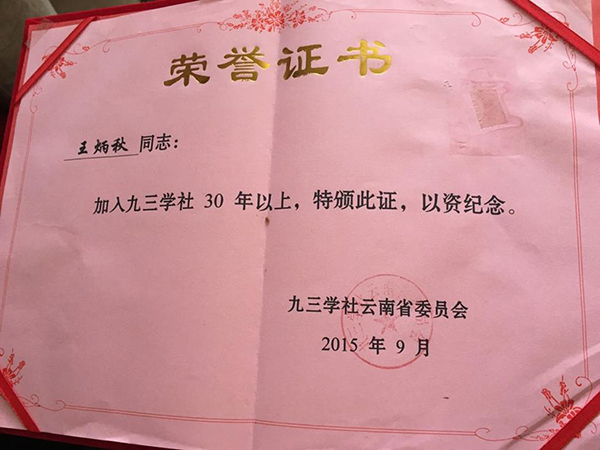 荣誉证书
王炳秋 同志：
加入九三学社 30 年以上，特颁此证，以资纪念。
九三学社云南省委员会
2015 年 9 月